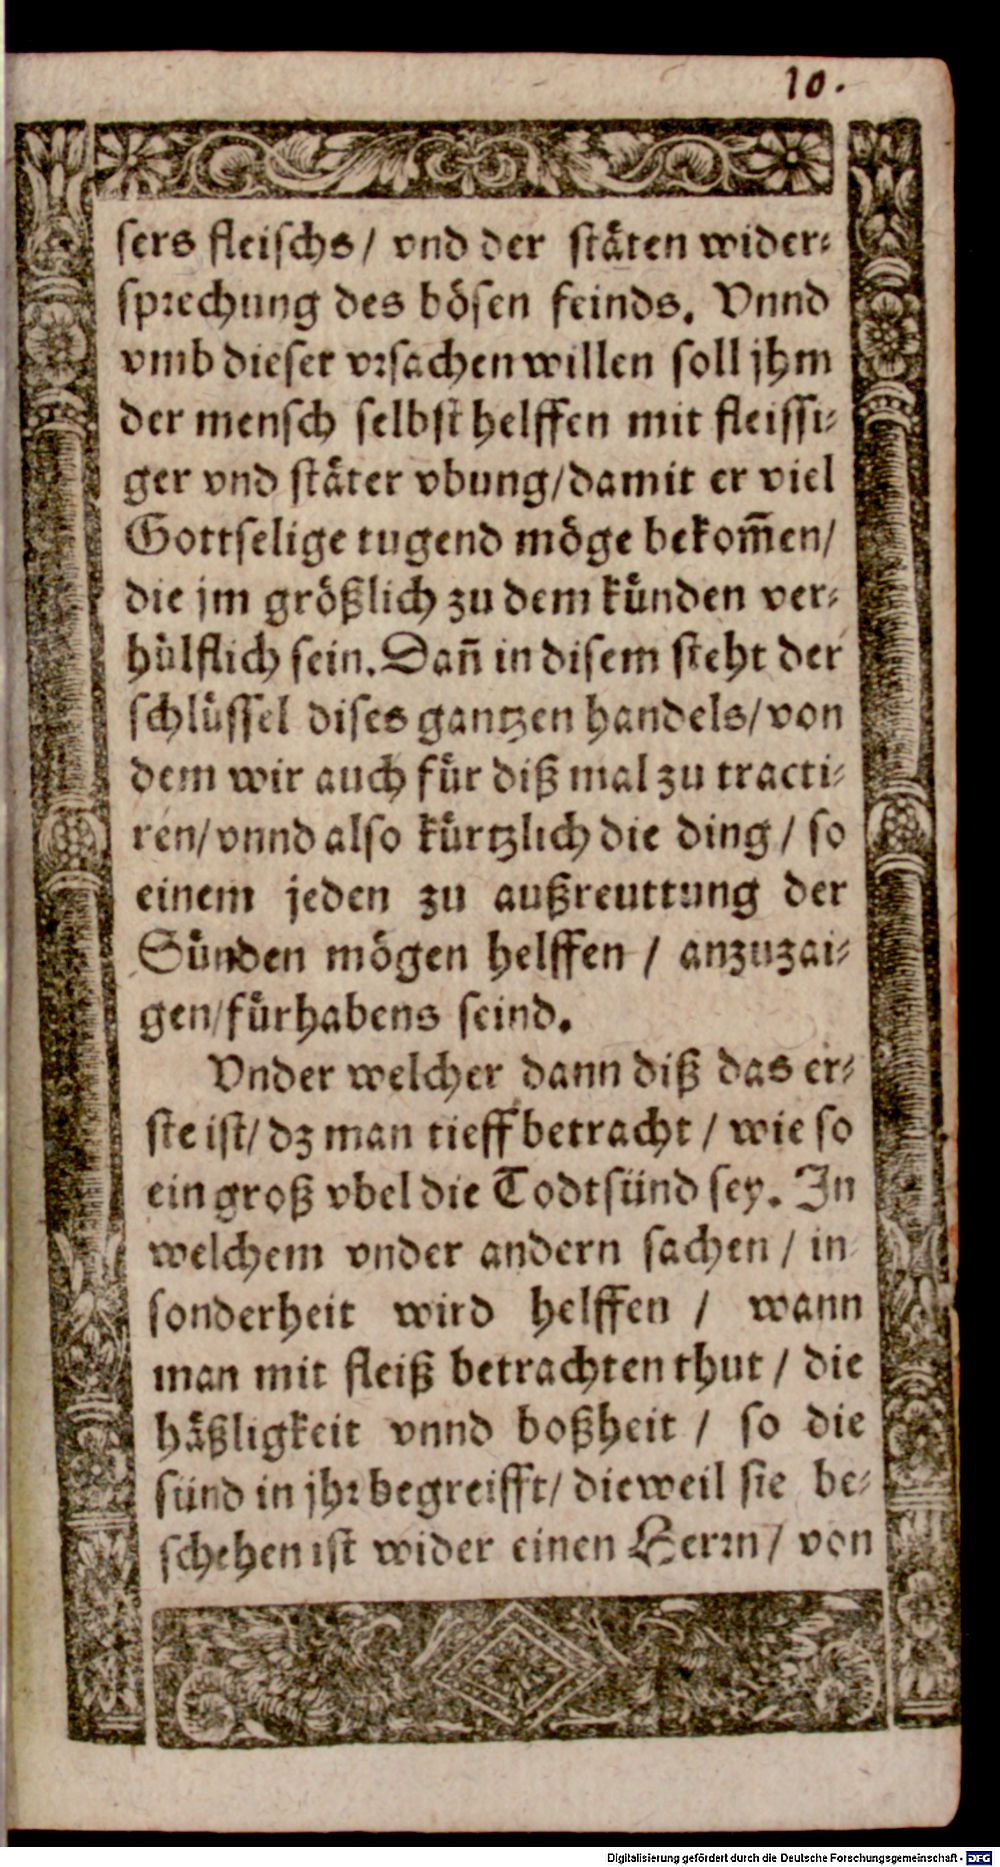 10.
sers fleischs/ vnd der stäten wider-
sprechung des bösen feinds. Vnnd
vmb dieser vrsachen willen soll jhm
der mensch selbst helffen mit fleissi-
ger vnd stäter vbung/damit er viel
Gottselige tugend möge bekom̃en/
die jm größlich zu dem künden ver-
hülflich sein. Dañ in disem steht der
schlüssel dises gantzen handels/von
dem wir auch für diß mal zu tracti-
ren/vnnd also kürtzlich die ding/ so
einem jeden zu außreuttung der
Sünden mögen helffen / anzuzai-
gen/fürhabens seind.
Vnder welcher dann diß das er-
ste ist/ dz man tieff betracht / wie so
ein groß vbel die Todtsünd sey. In
welchem vnder andern sachen / in-
sonderheit wird helffen / wann
man mit fleiß betrachten thut / die
häßligkeit vnnd boßheit / so die
sünd in jhr begreifft/ dieweil sie be-
schehen ist wider einen Herrn/ von
Digitalisierung gefördert durch die Deutsche Forschungsgemeinschaft - DFG